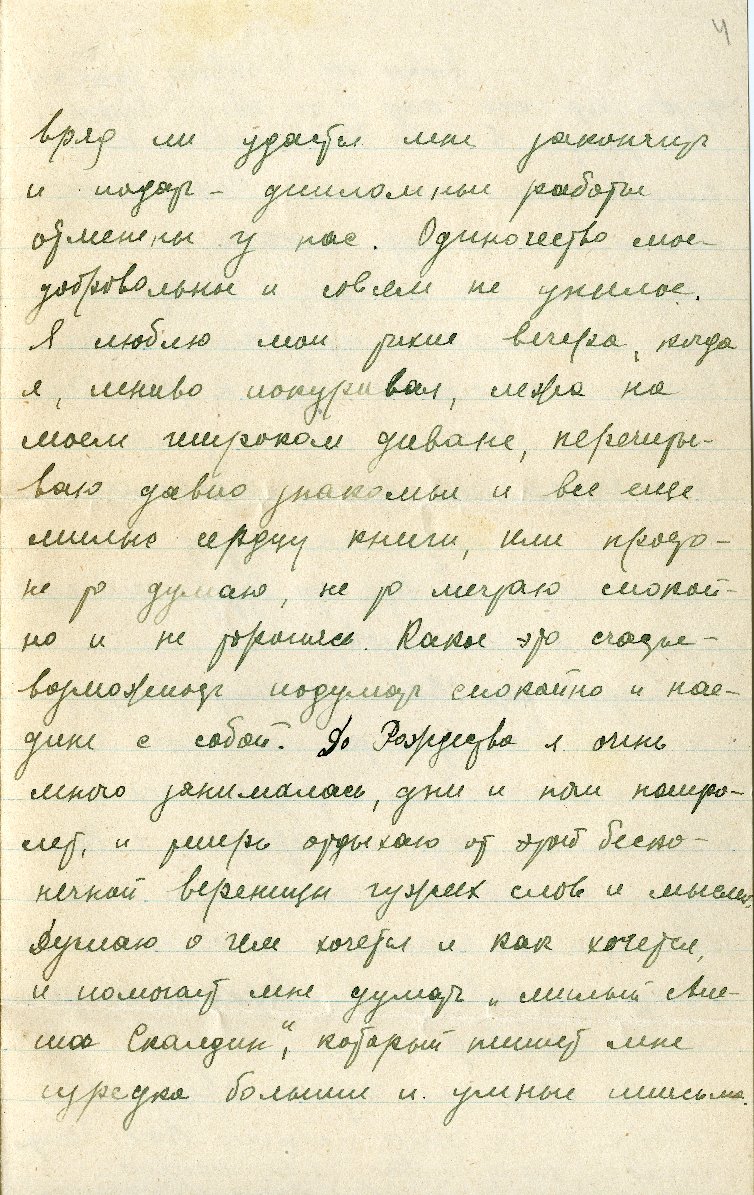 4
вряд ли удастся мне закончить
и подать – дипломные работы
отменены у нас. Одиночество мое
добровольное и совсем не унылое.
Я люблю мои тихие вечера, когда
я, лениво покуривая, лежа на
моем широком диване, перечиты-
ваю давно знакомые и все еще
милые сердцу книги, или просто –
не то думаю, не то мечтаю спокой-
но и не торопясь. Какое это счастье –
возможность подумать спокойно и нае-
дине с собой. До Рождества я очень
много занималась, дни и ночи напро-
лет, и теперь отдыхаю от этой беско-
нечной вереницы чужих слов и мыслей,
Думаю о чем хочется и как хочется,
и помогает мне думать „милый
Скалдин“, который пишет мне
изредка большие и умные письма.